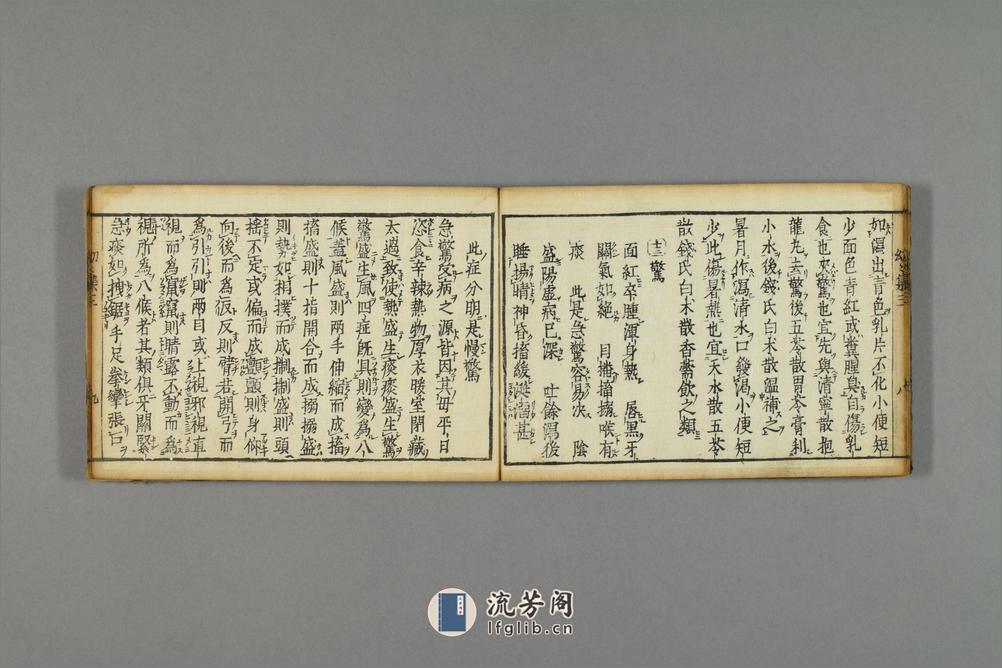 如瀉出青色乳片不化小便短
少面色青紅或糞腥臭自傷乳
食也夾驚也宜先與清寧散抱
龍丸去驚後五苓散男岑膏利
小水後錢氏白朮散溫補之
暑月作瀉清水口發渴小便短
少此傷暑熱也宜天水散五苓
散錢氏白朮散香薷飲之類
十三 驚
面紅卒腫渾身熱 唇黒牙
關氣如絕 目搐搖搦喉有
痰 此是急驚容易决 陰
盛陽虚病已深 吐餘瀉後
睡揚睛神昏搐緩涎 甚
此症分明是慢驚
急驚 病之源皆因其毋平日
恣食辛辣熱物厚衣暖室閉藏
太過致使熱盛生痰痰盛生驚
驚盛生風四症既具則變為八
候蓋風盛則两手伸縮而成搐
搐盛則十指開合而成搦搦盛
則勢如相撲而成掣掣盛則頭
搖不定或偏而成顫顫則身仰
向後而為反反則臂若開弓而
為引引則兩目或上視邪視直
視而為竄竄則睛露不動而為
視所為八候者其類俱牙關緊
急痰如拽鋸手足拳攣張口
流芳阁
lfglib.cn